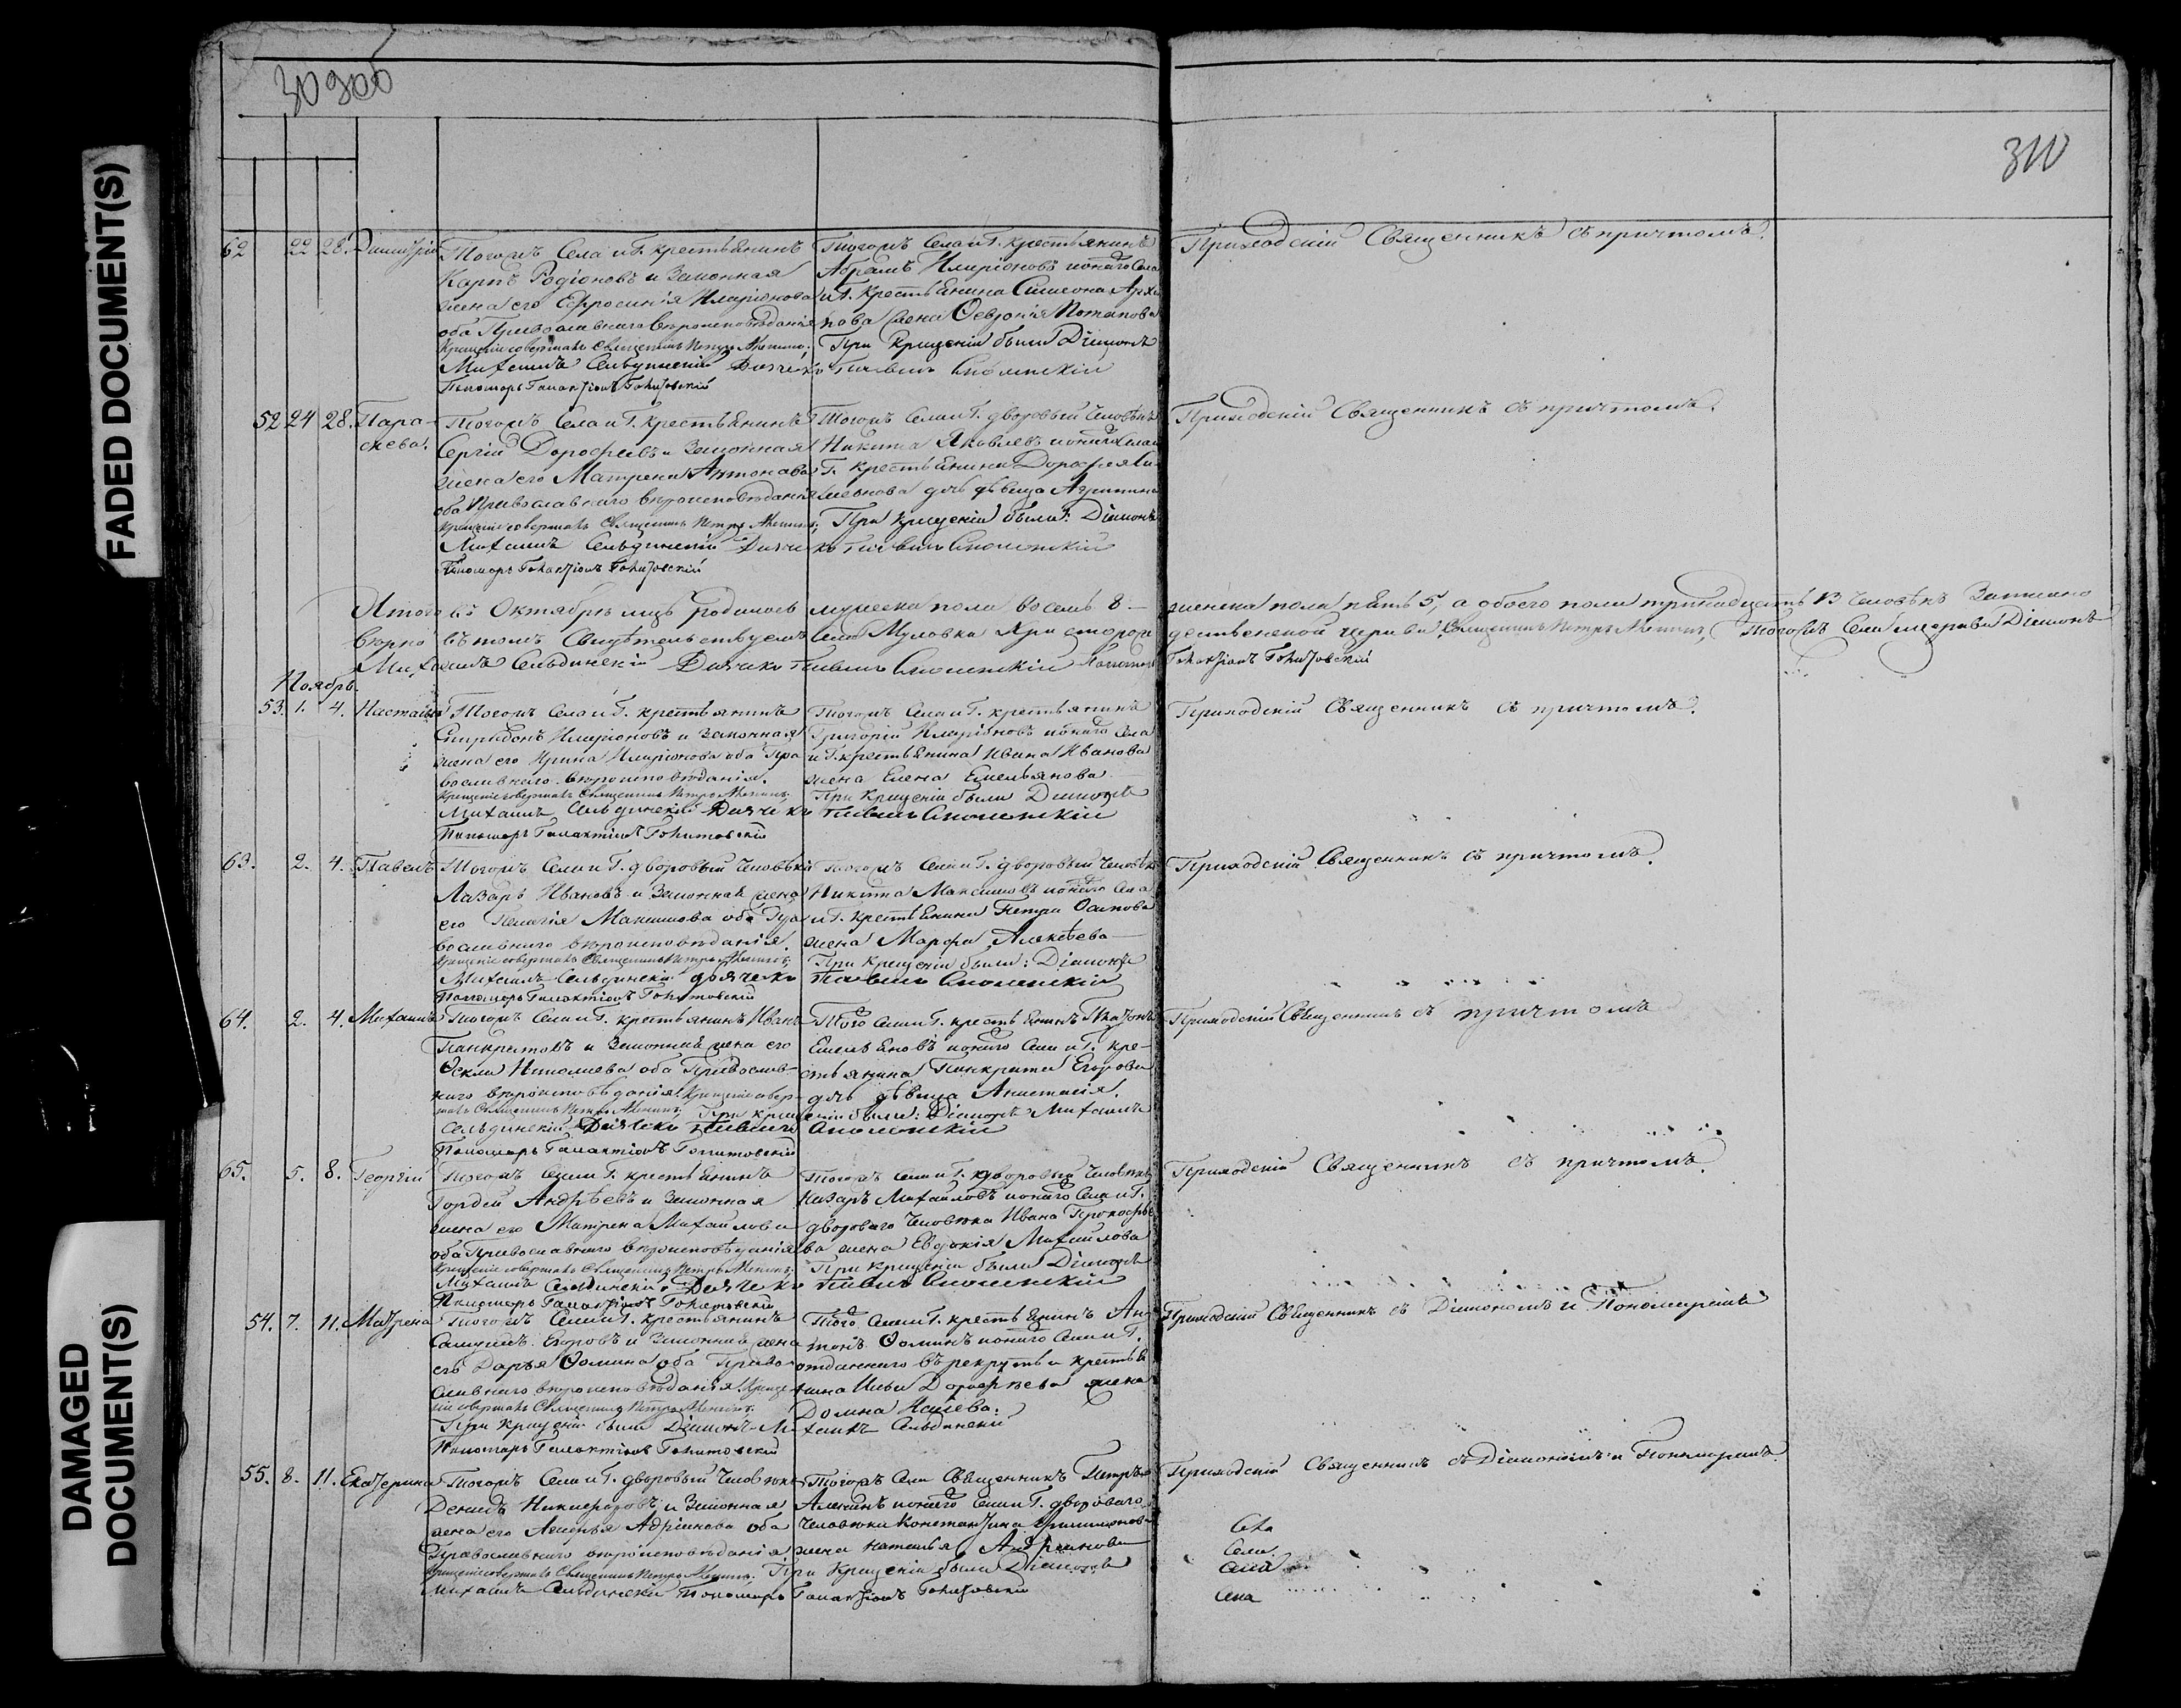 FADED DOCUMENT(S)
DAMAGED
DOCUMENT(S)
30 900
310
62 22 28. Димитрій
Тогожъ Села и Г. крестьянинъ
Карпъ Родіоновъ и Законная
жена его Ефросинія Иларіонова
оба Православнаго вѣроисповѣданія
Крещеніе совершалъ Священникъ Петръ
Михаилъ Сельдинскій Дьячекъ
Пономарь Галактіонъ
Тогожъ Села и Г. крестьянинъ
Абрамъ Иларіоновъ и онаго Села
и Г. крестьянина Симеона Архи
пова жена Февронія Потапова
При Крещеніи были Діаконъ
Павелъ Смоленскій
Приходскій Священникъ съ причтомъ.
52 24 28. Пара-
скева.
Тогожъ Села и Г. крестьянинъ
Сергій Дорофеевъ и Законная
жена его Матрена Антонова
оба Православнаго вѣроисповѣданія
Крещеніе совершалъ Священникъ Петръ
Михаилъ Сельдинскій Дьячекъ
Пономарь Галактіонъ
Тогожъ Села и Г. дворовый человѣкъ
Никита Яковлевъ и онаго Села и
Г. крестьянина Дорофея Си-
меонова дочь дѣвица Агрипина
При крещеніи были: Діаконъ
Павелъ Смоленскій
Приходскій Священникъ съ причтомъ.
Итого въ Октябрѣ мцѣ родилось мужеска пола восемь 8 — женска пола пять 5, а обоего пола тринадцать 13 человѣкъ Записано
вѣрно въ томъ Свидѣтельствуемъ Села Муловки священникъ Петръ Тогожъ Села церкви Діаконъ
Михаилъ Сельдинскій Дьячекъ Павелъ Смоленскій Пономарь Галактіонъ
Ноябрь.
53. 1. 4. Настасія
Тогожъ Села и Г. крестьянинъ
Спиридонъ Иларіоновъ и законная
жена его Ирина Иларіонова оба Пра
вославнаго вѣроисповѣданія.
Крещеніе совершалъ Священникъ Петръ
Михаилъ Сельдинскій Дьячекъ
Пономарь Галактіонъ
Тогожъ Села и Г. крестьянинъ
Григорій Иларіоновъ и онаго Села
и Г. крестьянина Ивана Иванова
жена Елена Емельянова
При Крещеніи были Діаконъ
Павелъ Смоленскій
Приходскій Священникъ съ причтомъ.
63. 2. 4. Павелъ
Тогожъ Села и Г. дворовый человѣкъ
Лазарь Ивановъ и Законная жена
его Пелагія Максимова оба Пра
вославнаго вѣроисповѣданія.
Крещеніе совершалъ Священникъ Петръ
Михаилъ Сельдинскій дьячекъ
Пономарь Галактіонъ
Тогожъ Села и Г. дворовый человѣкъ
Никита Максимовъ и онаго Села
и Г. крестьянина Петра Осипова
жена Марфа Алексѣева
При крещеніи были: Діаконъ
Павелъ Смоленскій
Приходскій Священникъ съ причтомъ.
64. 2. 4. Михаилъ
Тогожъ Села и Г. крестьянинъ Иванъ
Панкратовъ и Законная жена его
Фекла Николаева оба Православ-
наго вѣроисповѣданія. Крещеніе совер-
шалъ Священникъ Петръ При крещеніи были: Діаконъ Михаилъ
Сельдинскій Дьячекъ Павелъ Смоленскій
Пономарь Галактіонъ
Того Села и Г. крестьянинъ
Емельяновъ и онаго Села и Г. кре-
стьянина Панкрата Егорова
дочь дѣвица Анастасія.
Приходскій Священникъ съ причтомъ
65. 5. 8. Георгій
Тогожъ Села и Г. крестьянинъ
Гордей Андрѣевъ и Законная
жена его Матрена Михайлова
оба Православнаго вѣроисповѣданія
Крещеніе совершалъ Священникъ Петръ
Михаилъ Сельдинскій Дьячекъ
Пономарь Галактіонъ
Тогожъ Села и Г. дворовый человѣкъ
Назаръ Михайловъ и онаго Села и Г.
двороваго человѣка Ивана Прокофье
ва жена Евдокія Михайлова
При крещеніи были Діаконъ
Павелъ Смоленскій
Приходскій Священникъ съ причтомъ.
54. 7. 11. Матрена
Тогожъ Села и Г. крестьянинъ
Самуилъ Егоровъ и Законная жена
его Дарья Фомина оба Право-
славнаго вѣроисповѣданія. Креще
ніе совершалъ Священникъ Петръ
При Крещеніи были Діаконъ Ми-
хаилъ Сельдинскій
Пономарь Галактіонъ
Того Села и Г. крестьянинъ Ан
тонъ Фоминъ и онаго Села и Г.
отданнаго въ рекруты крестья
нина Ильи Дорофѣева жена
Домна
Приходскій Священникъ съ Діакономъ и Пономаремъ
55. 8. 11. Екатерина
Тогожъ Села и Г. дворовый человѣкъ
Демидъ Никифоровъ и Законная
жена его Адріанова оба
Православнаго вѣроисповѣданія.
Крещеніе совершалъ Священникъ Петръ
Михаилъ Сельдинскій Пономарь Галактіонъ
Тогожъ Села Священникъ Петръ
и онаго Села и Г. двороваго
человѣка Константина
жена Наталья Андреянова
При Крещеніи были Діаконъ
Приходскій Священникъ съ Діакономъ и Пономаремъ.
Села
Села